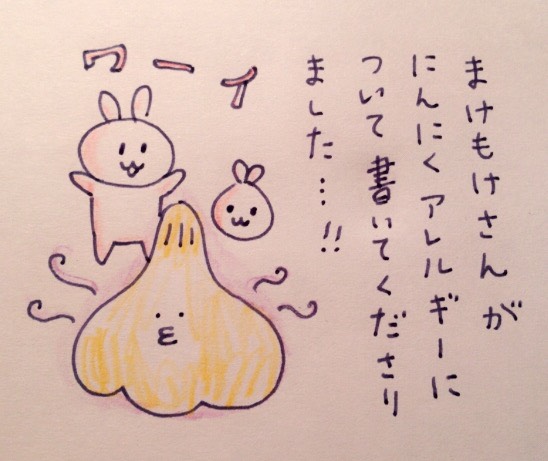 ワーイ
まけもけさんが
にんにくアレルギーに
ついて書いてくださり
ました…!!